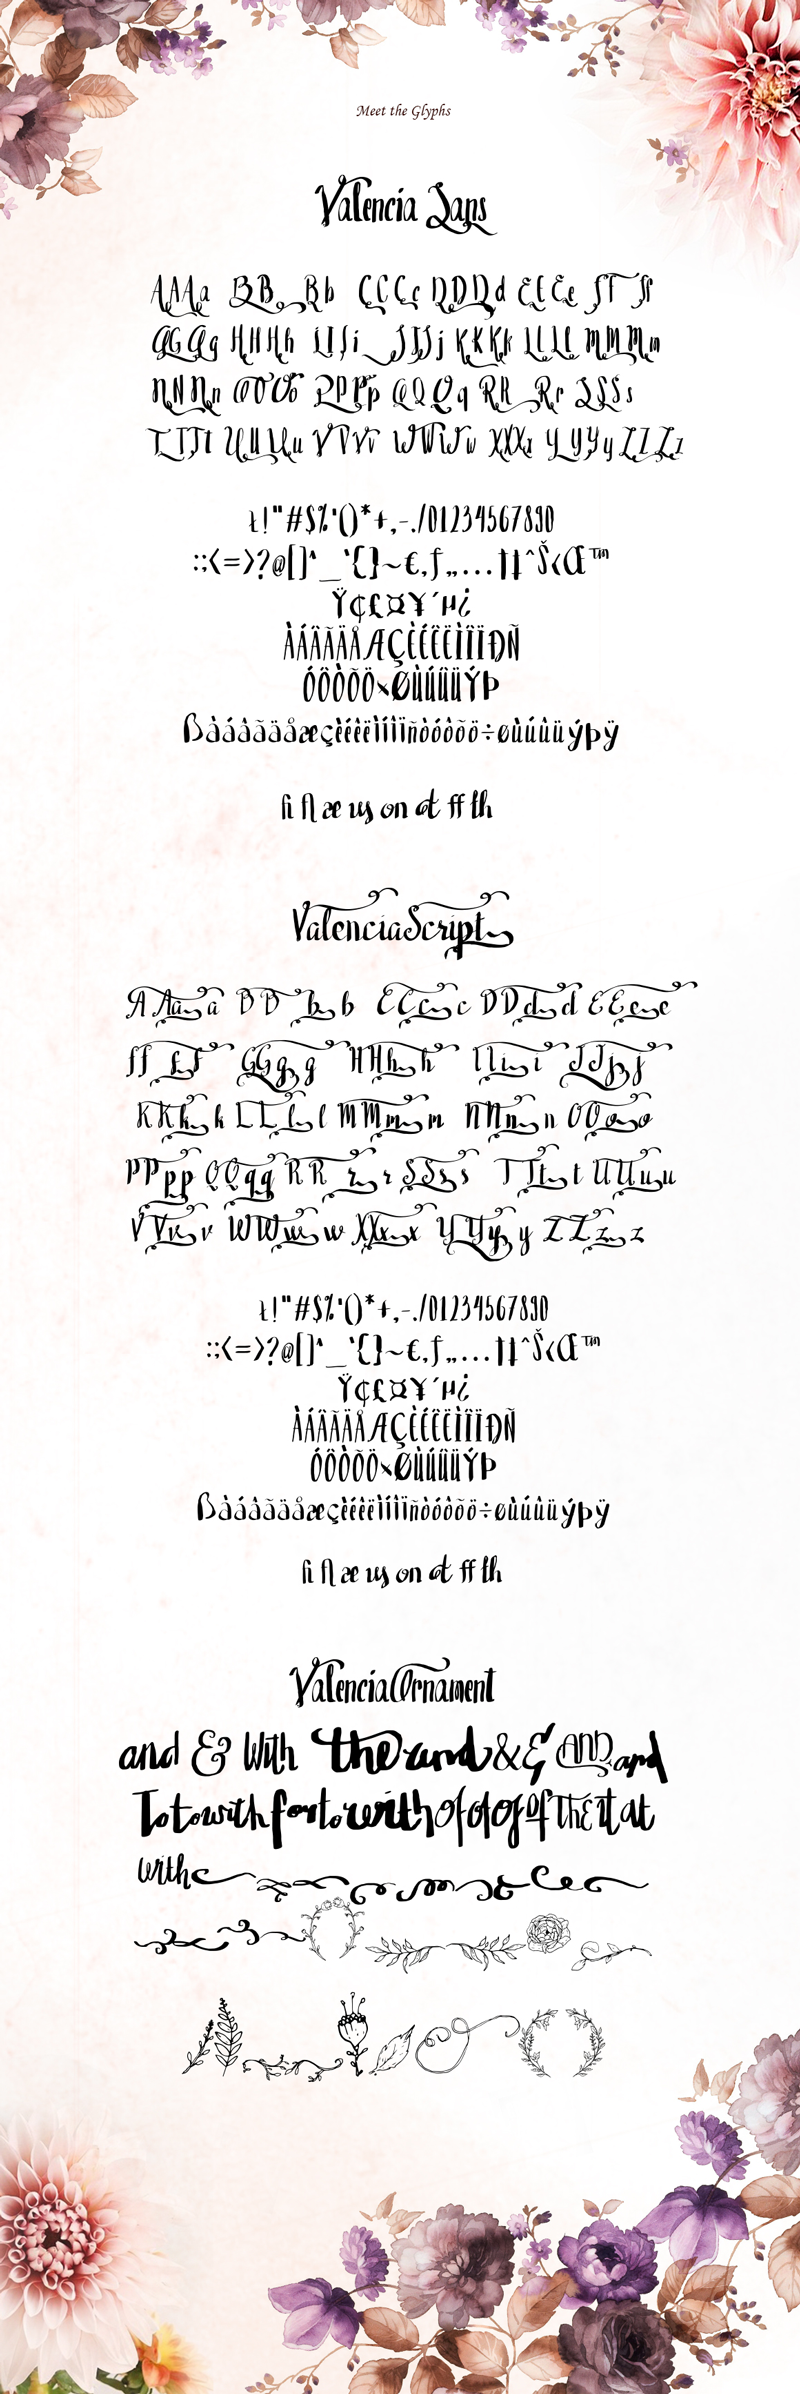 Meet the Glyphs
Valencia Sans
AAAa BB Bb CCCc DDDd EEEe ff ff
GGGg HHHh IIIi JJJj KKKk LLLl MMMm
NNNn OOOo PPPp QQQq RR Rr SSSs
TTTt UUUu VVVv WWWw XXXx YYYy ZZZz
!"#$%'()*+,-./0123456789
:;<=>?@[]^_`{}~€,ƒ„…†‡ˆŠ‹Œ™
Ÿ¢£¤¥´µ¿
ÀÁÂÃÄÅÆÇÈÉÊËÌÍÎÏÐÑ
ÓÔÒÕÖ×ØÙÚÛÜÝÞ
ßàáâãäåæçèéêëìíîïñòóôõö÷øùúûüýþÿ
fi fl æ us on at ff th
Valencia Script
A Aa a B B b b C C c c D D d d E E e e
f f f f G G g g H H h h I I i i J J j j
K K k k L L l l M M m m N N n n O O o o
P P p p Q Q q q R R r r S S s s T T t t U U u u
V V v v W W w w X X x x Y Y y y Z Z z z
!"#$%'()*+,-./0123456789
:;<=>?@[]^_`{}~€,ƒ„…†‡ˆŠ‹Œ™
Ÿ¢£¤¥´µ¿
ÀÁÂÃÄÅÆÇÈÉÊËÌÍÎÏÐÑ
ÓÔÒÕÖ×ØÙÚÛÜÝÞ
ßàáâãäåæçèéêëìíîïñòóôõö÷øùúûüýþÿ
fi fl æ us on at ff th
Valencia Ornament
and & With the and & & AND and
To to with for to with of of of of The it at
with